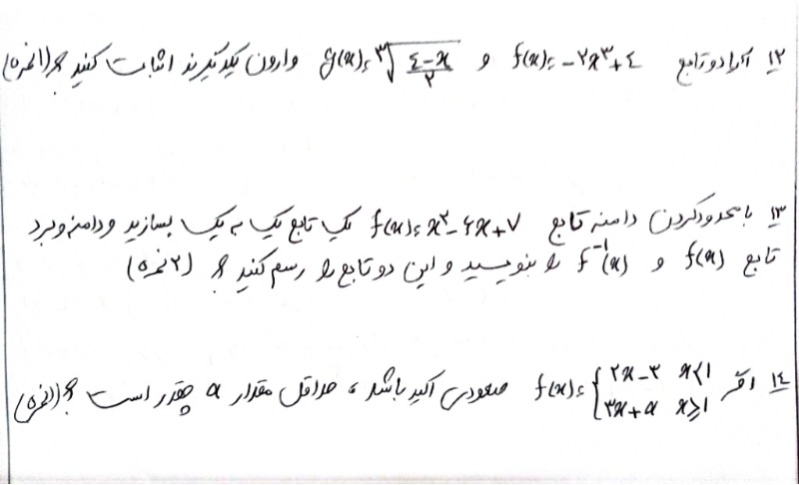 ۱۲ آیا دو تابع f(x) = -۲x³+٤ و g(x) = ³√((٤-x)/۲) وارون یکدیگرند اثبات کنید ؟ (۱نمره)
۱۳ با محدود کردن دامنه تابع f(x) = x²-۶x+۷ یک تابع یک به یک بسازید و دامنه و برد
تابع f(x) و f⁻¹(x) را بنویسید و این دو تابع را رسم کنید ؟ (۲نمره)
۱٤ اگر f(x) = { ۲x-۳ x<۱
۳x+a x≥۱ صعودی اکید باشد، حداقل مقدار a چقدر است ؟ (۱نمره)